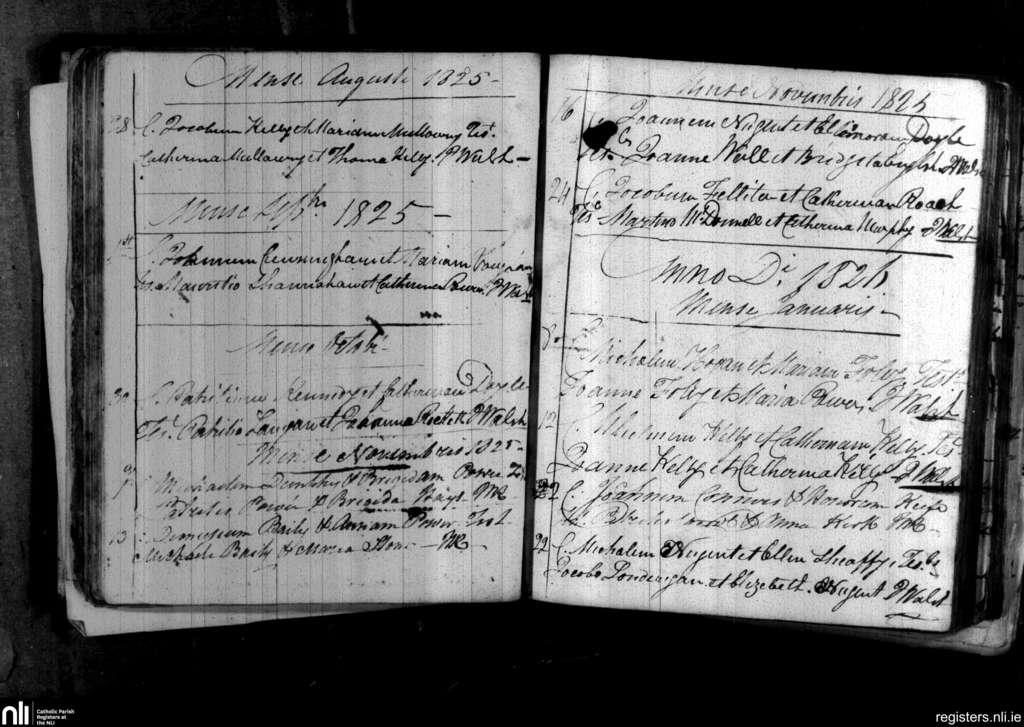 Mense Augusti 1825 -
28 C. Jacobum Kelly et Mariam Mullowny Tes.
Catherina Mullowny et Thoma Kelly. P Walsh -
Mense Septbris 1825 -
C. Johannem et Mariam
Tes. Mauritio et Catherina Power. P Walsh
Mense Octobris
30 C. Patritium Kennedy et Catherinam Doyle
Tes. Patritio Langan et Joanna P Walsh
Mense Novembris 1825 -
9 C. Michaelem & Brigidam Power Tes
Power & Brigida Hays
13 C. Dionisium Baily & Annam Power Test
Michaele Baily & Maria
Mense Novembris 1825
16 C. Joannem Nugent et Elenoram Doyle
Tes. Joanne Wall et Bridgeta P Walsh
24 C. Jacobum et Catherinam Roach
Tes. Martino McDonnell et Catherina Murphy P Walsh
Anno Di. 1826
Mense Januaris -
8 C. Michalem Horan et Mariam Foley Test
Joanne Foley et Maria Power P Walsh
12 C. Kelly et Catherinam Kelly Tes.
Joanne Kelly et Catherina Kelly P Walsh
22 C. Joannem Connors & Honoram Keefe
Tes. & Anna
22 C. Michalem Nugent et Ellen Sheaffy, Tesbs
Jacobo Londergan et Elizabeth Nugent P Walsh
nli Catholic Parish
Registers at
the NLI
registers.nli.ie